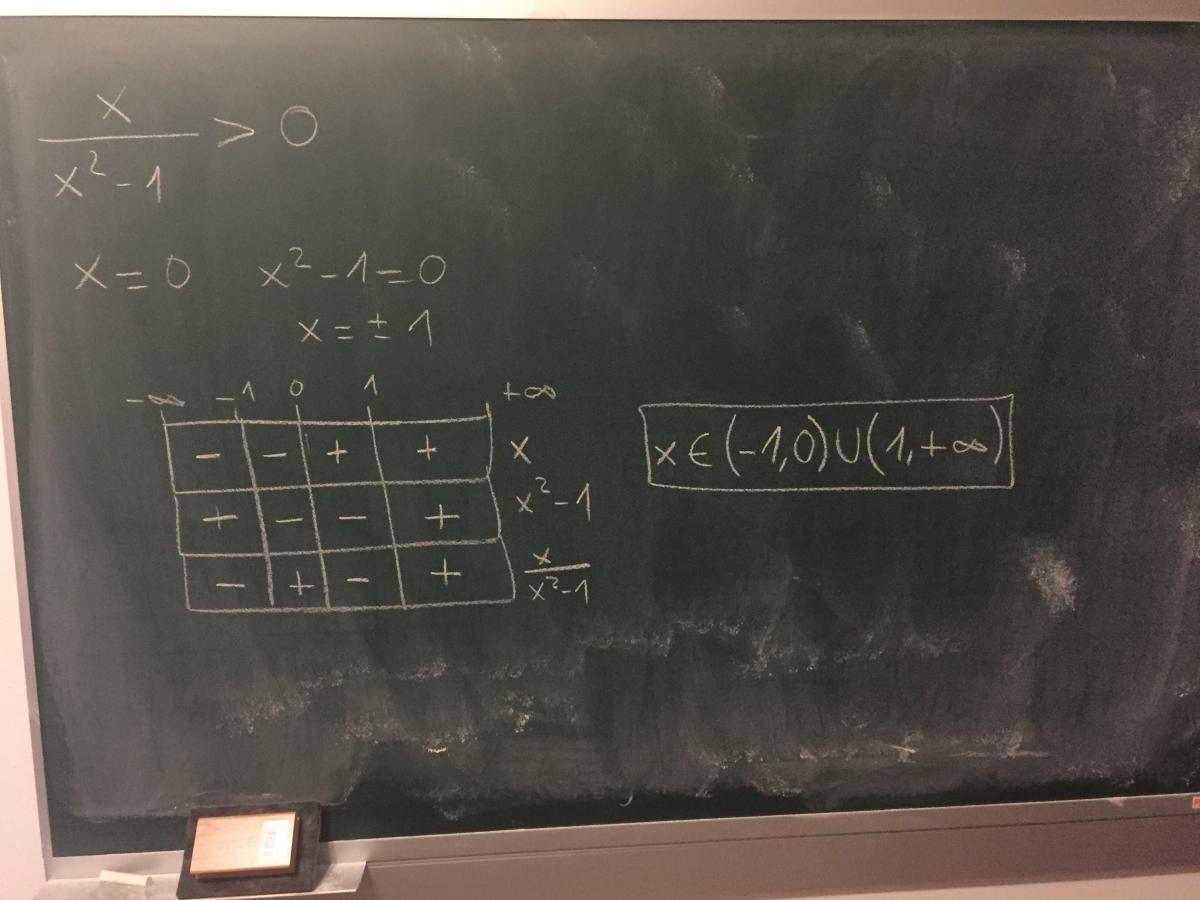 x
x² - 1
> 0
x = 0 x² - 1 = 0
x = ± 1
-∞ -1 0 1 +∞
- - + + x
+ - - + x² - 1
- + - + x
x² - 1
x ∈ (-1,0) ∪ (1,+∞)